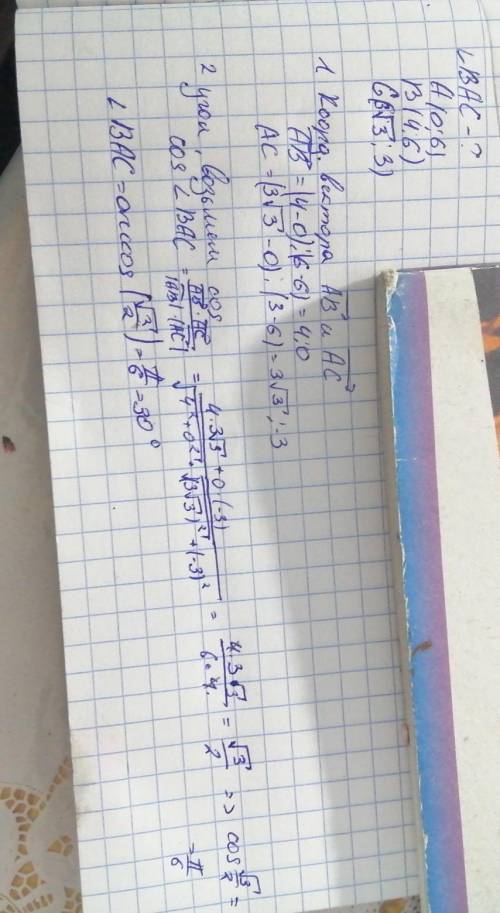 ∠BAC - ?
A (0; 6)
B (4; 6)
C (3√3; 3)
1 Коорд. вектора AB и AC
AB = (4-0); (6-6) = 4; 0
AC = (3√3 - 0); (3-6) = 3√3; -3
2 угол, возьмем cos
cos ∠BAC = AB·AC / |AB|·|AC| = 4·3√3 + 0·(-3) / √4²+0² · √(3√3)²+(-3)² = 4·3√3 / 6·4 = √3/2 => cos √3/2 = = π/6
∠BAC = arccos (√3/2) = π/6 = 30°